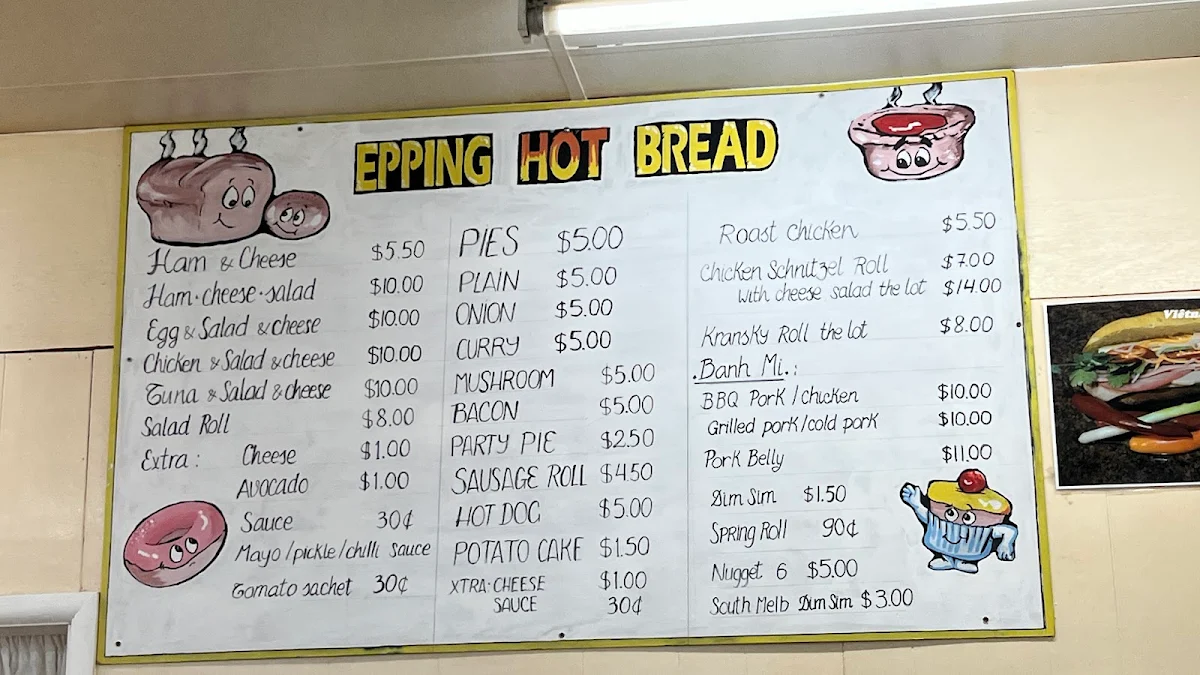 EPPING HOT BREAD
Ham & Cheese $5.50
Ham·cheese·salad $10.00
Egg & Salad & cheese $10.00
Chicken & Salad & cheese $10.00
Tuna & Salad & cheese $10.00
Salad Roll $8.00
Extra: Cheese $1.00
Avocado $1.00
Sauce 30¢
Mayo/pickle/chilli sauce
Tomato sachet 30¢
PIES $5.00
PLAIN $5.00
ONION $5.00
CURRY $5.00
MUSHROOM $5.00
BACON $5.00
PARTY PIE $2.50
SAUSAGE ROLL $4.50
HOT DOG $5.00
POTATO CAKE $1.50
XTRA: CHEESE $1.00
SAUCE 30¢
Roast Chicken $5.50
Chicken Schnitzel Roll $7.00
with cheese salad the lot $14.00
Kransky Roll the lot $8.00
.Banh Mi.:
BBQ Pork/chicken $10.00
Grilled pork/cold pork $10.00
Pork Belly $11.00
Dim Sim $1.50
Spring Roll 90¢
Nugget 6 $5.00
South Melb Dim Sim $3.00